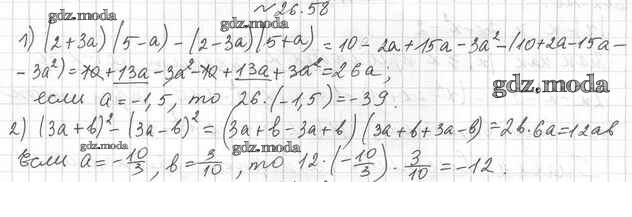 №26.58
gdz.moda
gdz.moda
1) (2+3a)(5-a)-(2-3a)(5+a)=10-2a+15a-3a²-(10+2a-15a-
-3a²)=10+13a-3a²-10+13a+3a²=26a;
gdz.moda
если a=-1,5, то 26·(-1,5)=-39.
2) (3a+b)²-(3a-b)²=(3a+b-3a+b)(3a+b+3a-b)=2b·6a=12ab
gdz.moda
gdz.moda
Если a=-10/3, b=3/10, то 12·(-10/3)·3/10=-12.